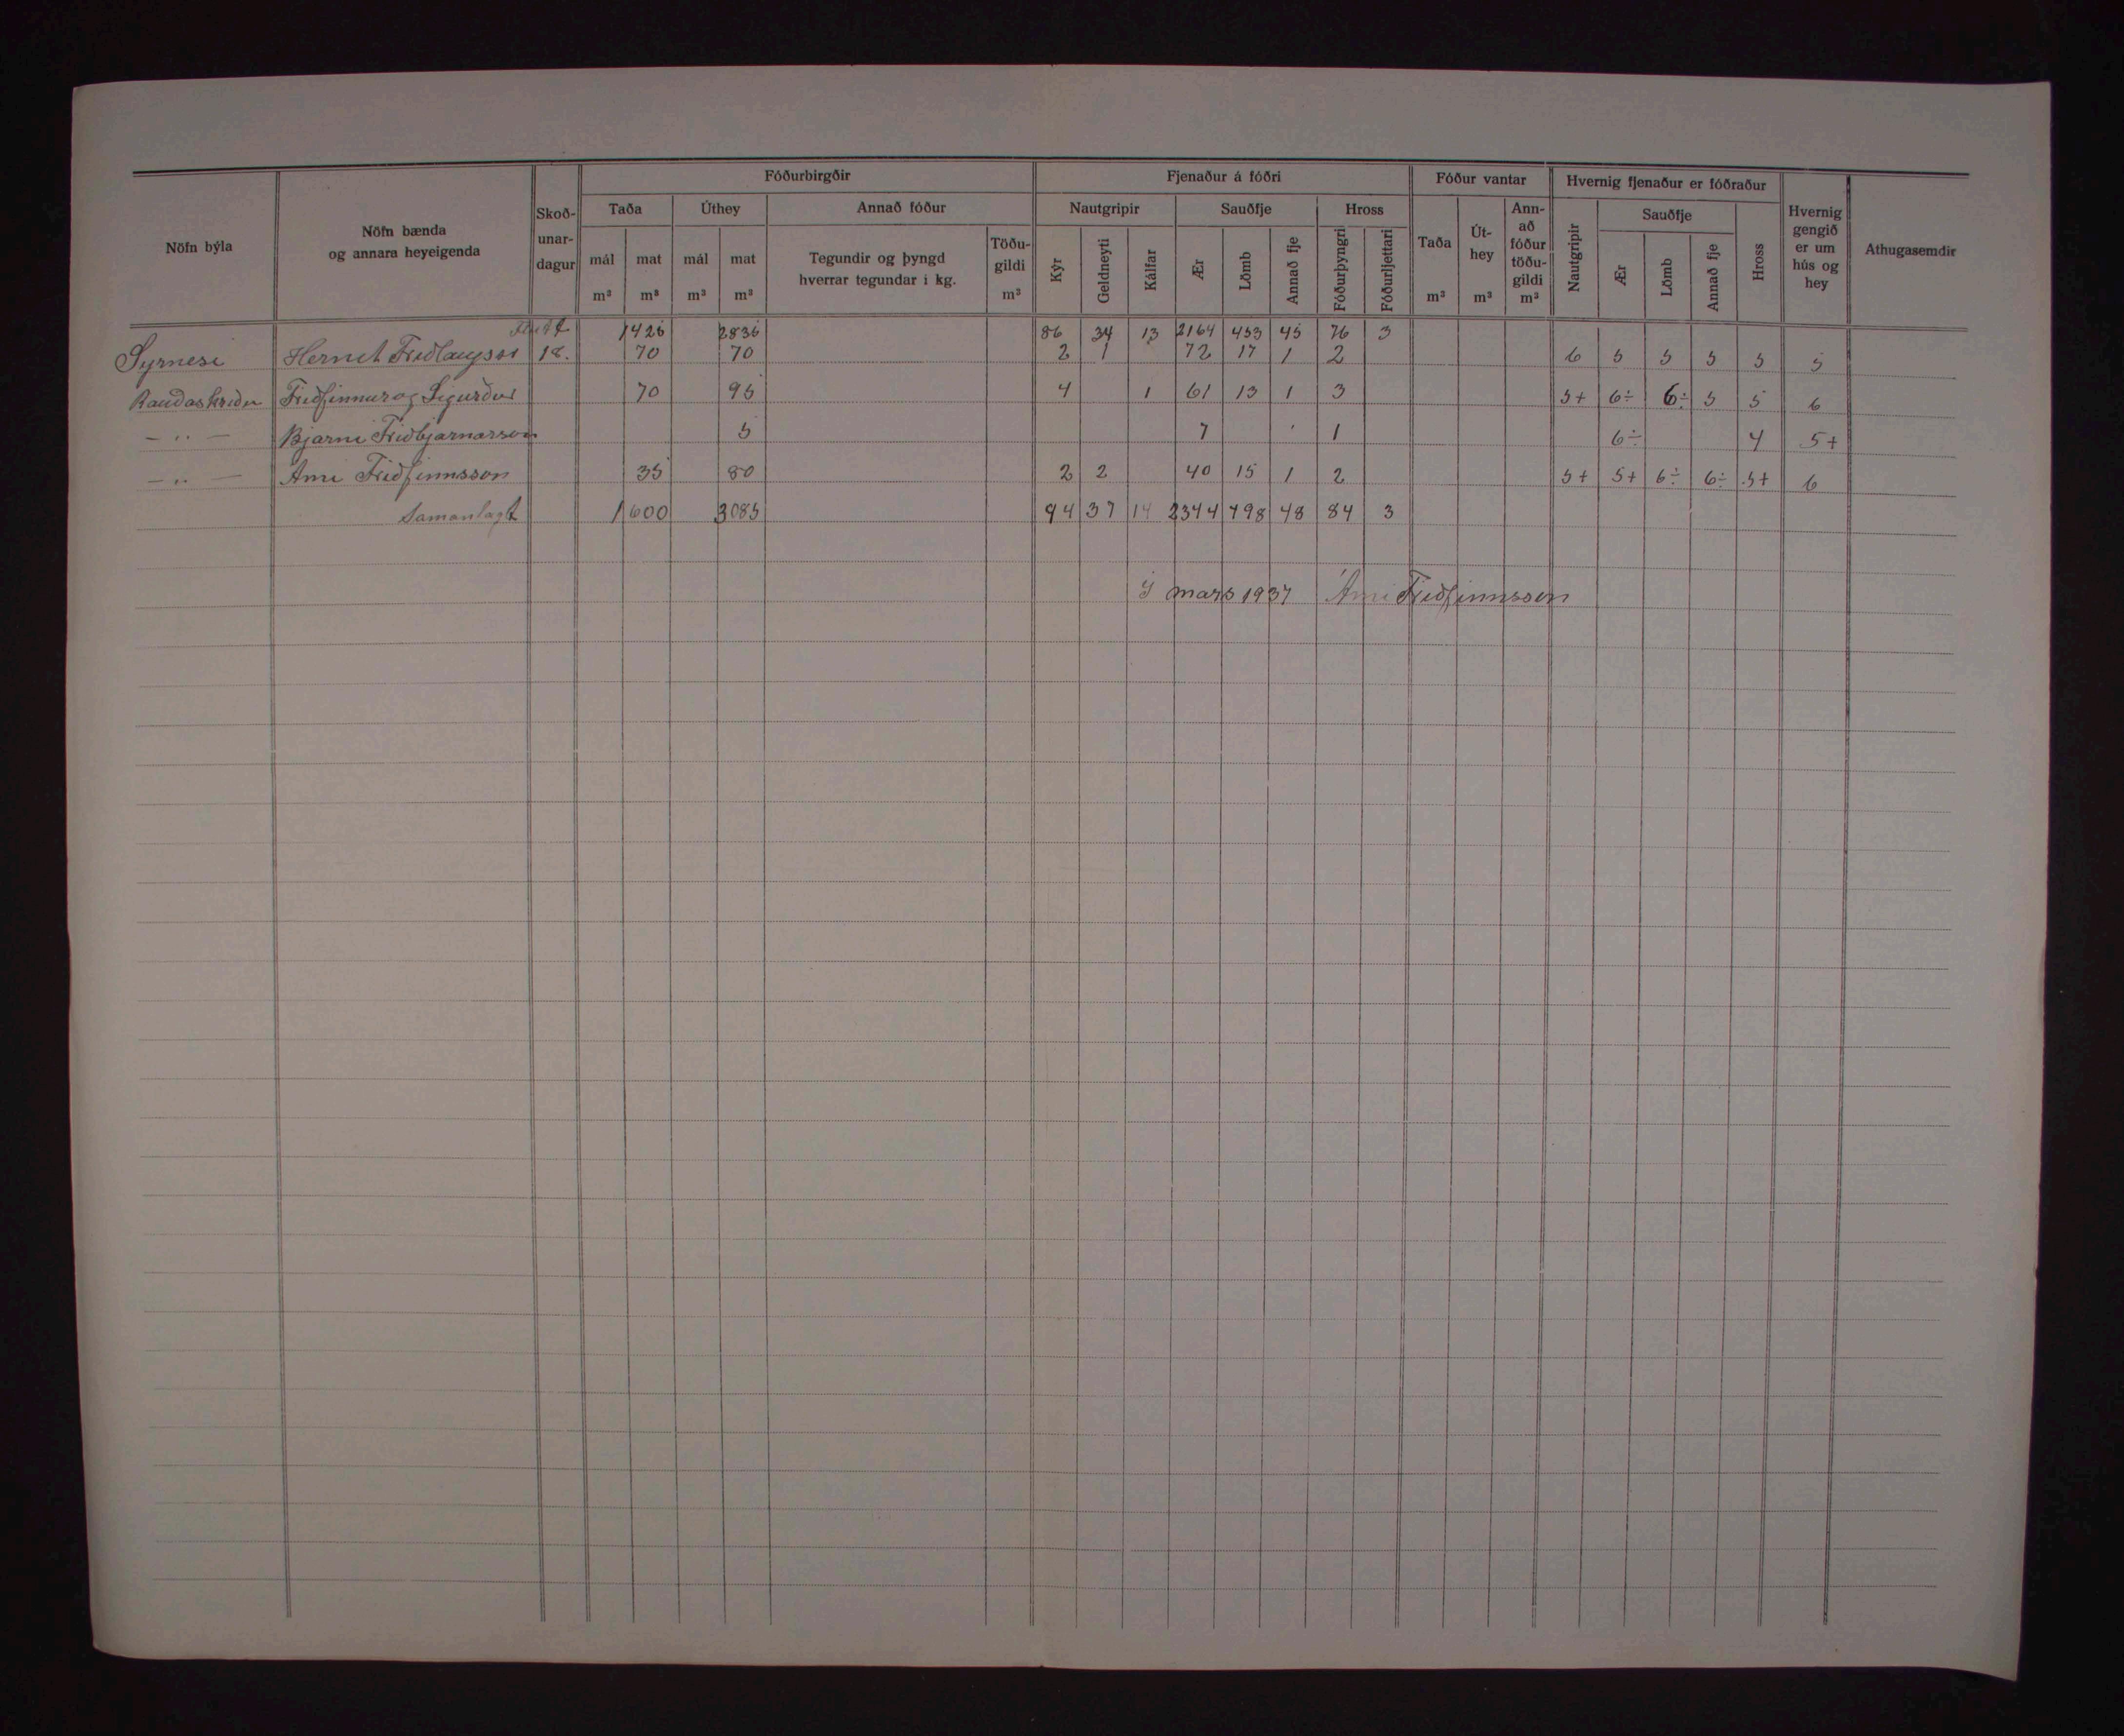 Fóðurbirgðir Fjenaður á fóðri Fóður vantar Hvernig fjenaður er fóðraður
Nöfn býla Nöfn bænda og annara heyeigenda Skoð-unar-dagur Taða Úthey Annað fóður Nautgripir Sauðfje Hross Taða m³ Út-hey m³ Ann-að fóður töðu-gildi m³ Nautgripir Sauðfje Hross Hvernig gengið er um hús og hey Athugasemdir
mál m³ mat m³ mál m³ mat m³ Tegundir og þyngd hverrar tegundar í kg. Töðu-gildi m³ Kýr Geldneyti Kálfar Ær Lömb Annað fje Fóðurþyngri Fóðurljettari Ær Lömb Annað fje
Flutt 1425 2835 86 34 13 2164 453 45 76 3
Syrnesi Hernit Friðlaugsson 18. 70 70 2 1 72 17 1 2 6 5 5 5 5 5
Rauðaskriðu Friðfinnur og Sigurður 70 95 4 1 61 13 1 3 5+ 6÷ 6÷ 5 5 6
— " — Bjarni Friðbjarnarson 5 7 ' 1 6÷ 4 5+
— " — Árni Friðfinnsson 35 80 2 2 40 15 1 2 5+ 5+ 6÷ 6÷ 5+ 6
Samanlagt 1600 3085 94 37 14 2344 498 48 84 3
mars 1937 Árni Friðfinnsson